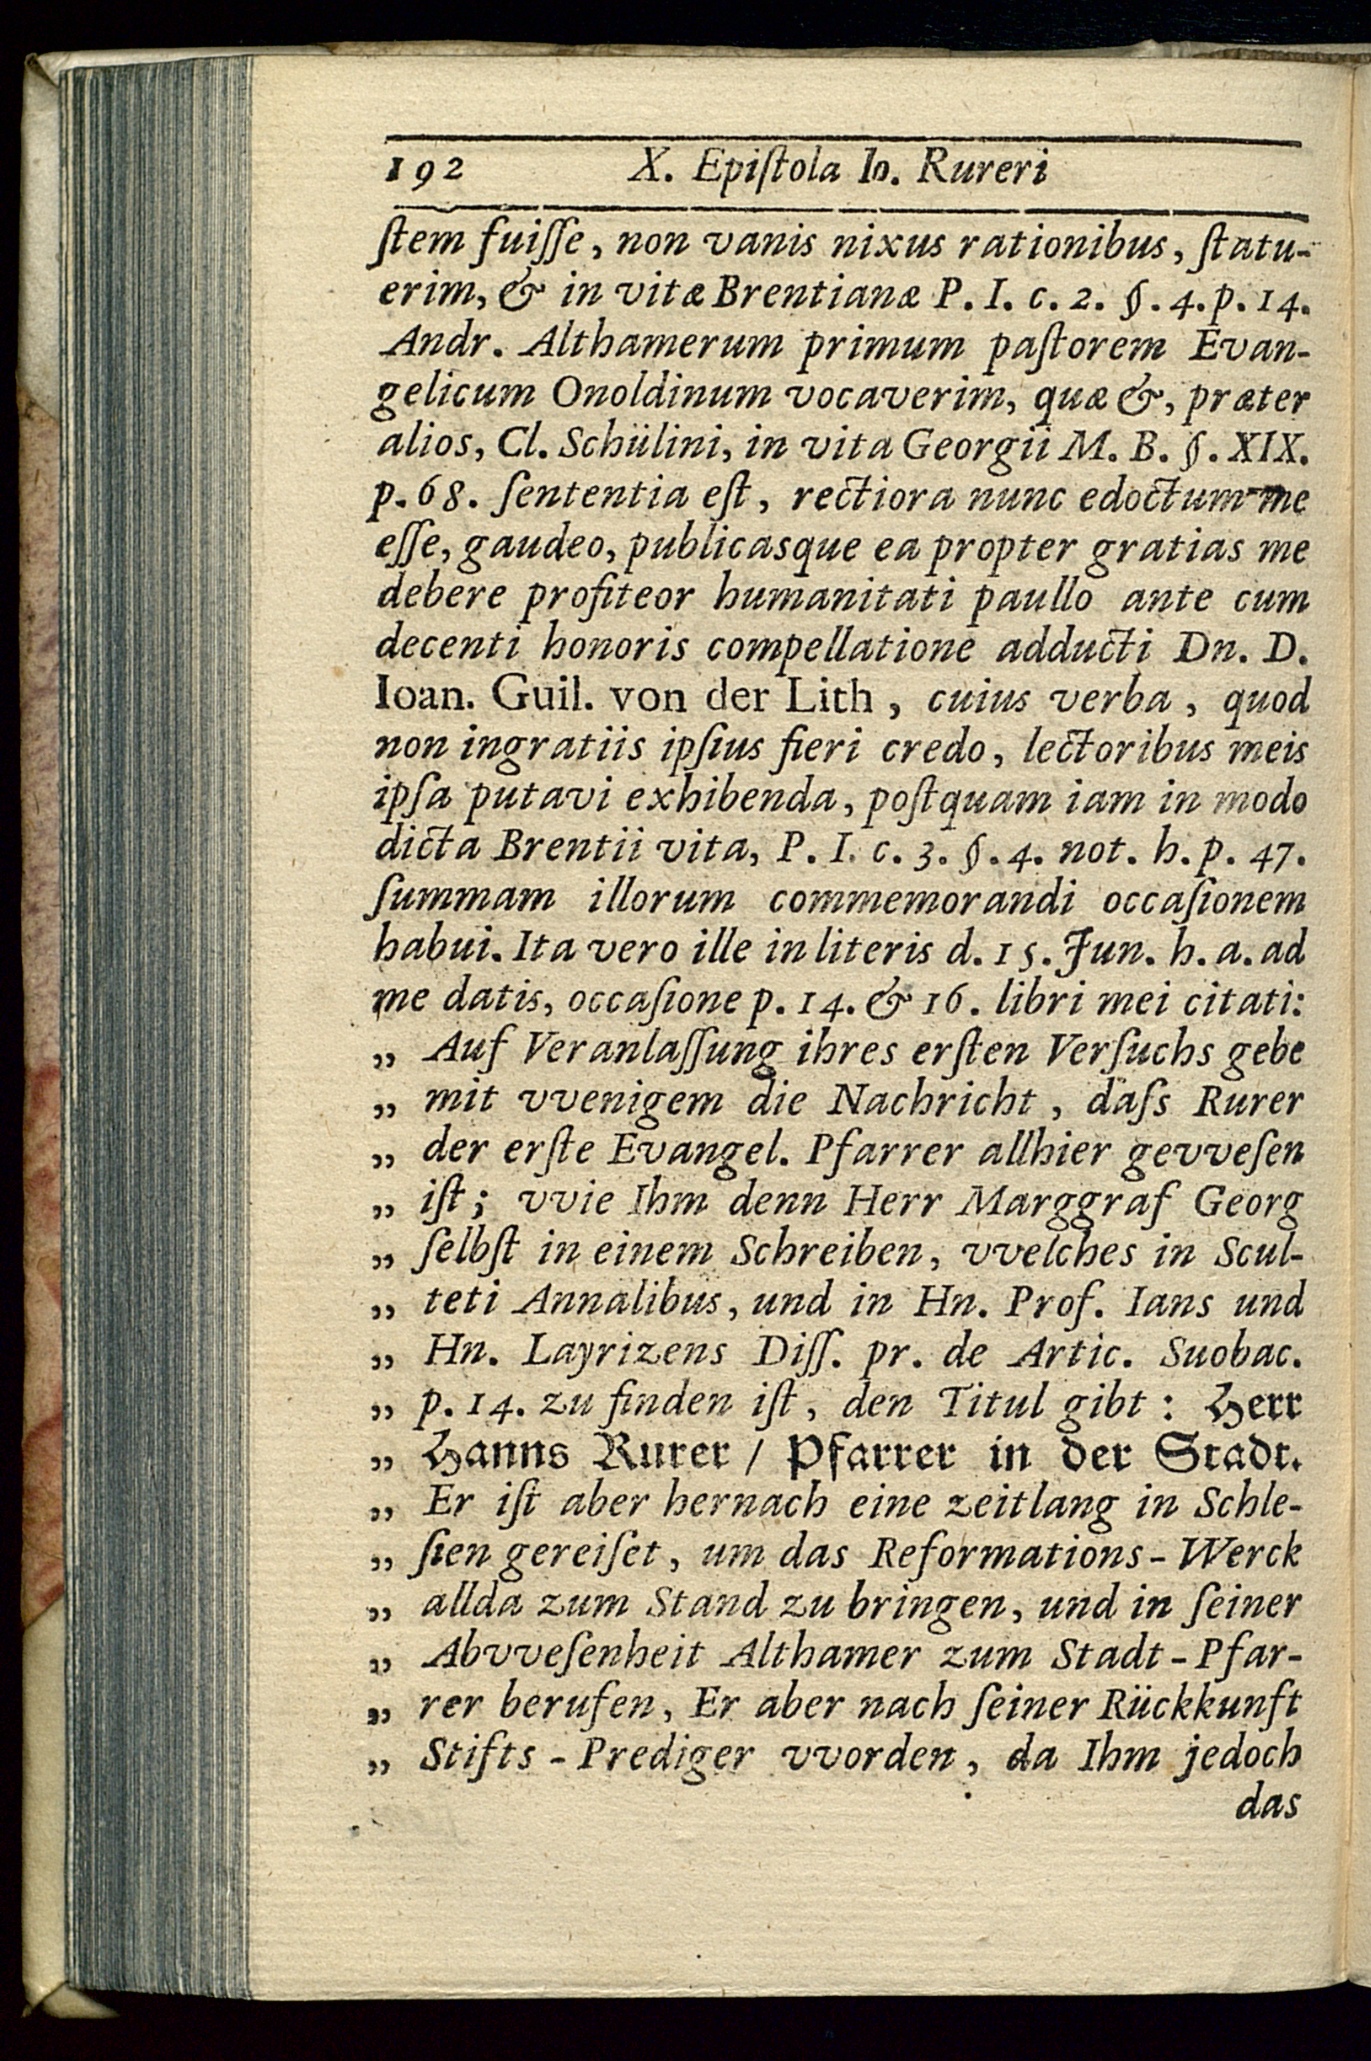 192 X. Epiſtola Io. Rureri
ſtem fuiſſe, non vanis nixus rationibus, ſtatu-
erim, & in vitæ Brentianæ P. I. c. 2. §. 4. p. 14.
Andr. Althamerum primum paſtorem Evan-
gelicum Onoldinum vocaverim, quæ &, præter
alios, Cl. Schülini, in vita Georgii M. B. §. XIX.
p. 68. ſententia eſt, rectiora nunc edoctum me
eſſe, gaudeo, publicasque ea propter gratias me
debere profiteor humanitati paullo ante cum
decenti honoris compellatione adducti Dn. D.
Ioan. Guil. von der Lith, cuius verba, quod
non ingratiis ipſius fieri credo, lectoribus meis
ipſa putavi exhibenda, poſtquam iam in modo
dicta Brentii vita, P. I. c. 3. §. 4. not. h. p. 47.
ſummam illorum commemorandi occaſionem
habui. Ita vero ille in literis d. 15. Jun. h. a. ad
me datis, occaſione p. 14. & 16. libri mei citati:
„ Auf Veranlaſſung ihres erſten Verſuchs gebe
„ mit vvenigem die Nachricht, daſs Rurer
„ der erſte Evangel. Pfarrer allhier gevveſen
„ iſt; vvie Ihm denn Herr Marggraf Georg
„ ſelbſt in einem Schreiben, vvelches in Scul-
„ teti Annalibus, und in Hn. Prof. Ians und
„ Hn. Layrizens Diſſ. pr. de Artic. Suobac.
„ p. 14. zu finden iſt, den Titul gibt: Herr
„ Hanns Rurer / Pfarrer in der Stadt.
„ Er iſt aber hernach eine zeitlang in Schle-
„ ſien gereiſet, um das Reformations-Werck
„ allda zum Stand zu bringen, und in ſeiner
„ Abvveſenheit Althamer zum Stadt-Pfar-
„ rer berufen, Er aber nach ſeiner Rückkunft
„ Stifts-Prediger vvorden, da Ihm jedoch
das